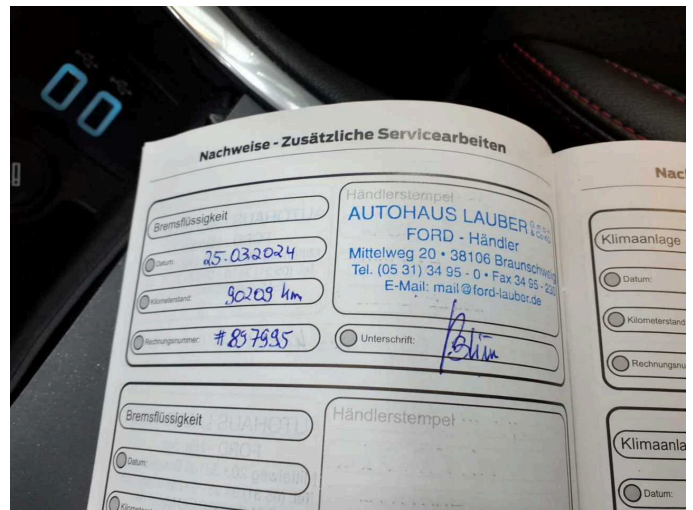 Nachweise - Zusätzliche Servicearbeiten
Bremsflüssigkeit
Datum: 25.03.2024
Kilometerstand: 90209 km
Rechnungsnummer: #897995
Händlerstempel
AUTOHAUS LAUBER GmbH & Co. KG
FORD - Händler
Mittelweg 20 • 38106 Braunschweig
Tel. (05 31) 34 95 - 0 • Fax 34 95 - 230
E-Mail: mail@ford-lauber.de
Unterschrift:
Bremsflüssigkeit
Datum:
Kilometerstand
Händlerstempel
Nac
Klimaanlage
Datum:
Kilometerstand
Rechnungsnu
Klimaanla
Datum: